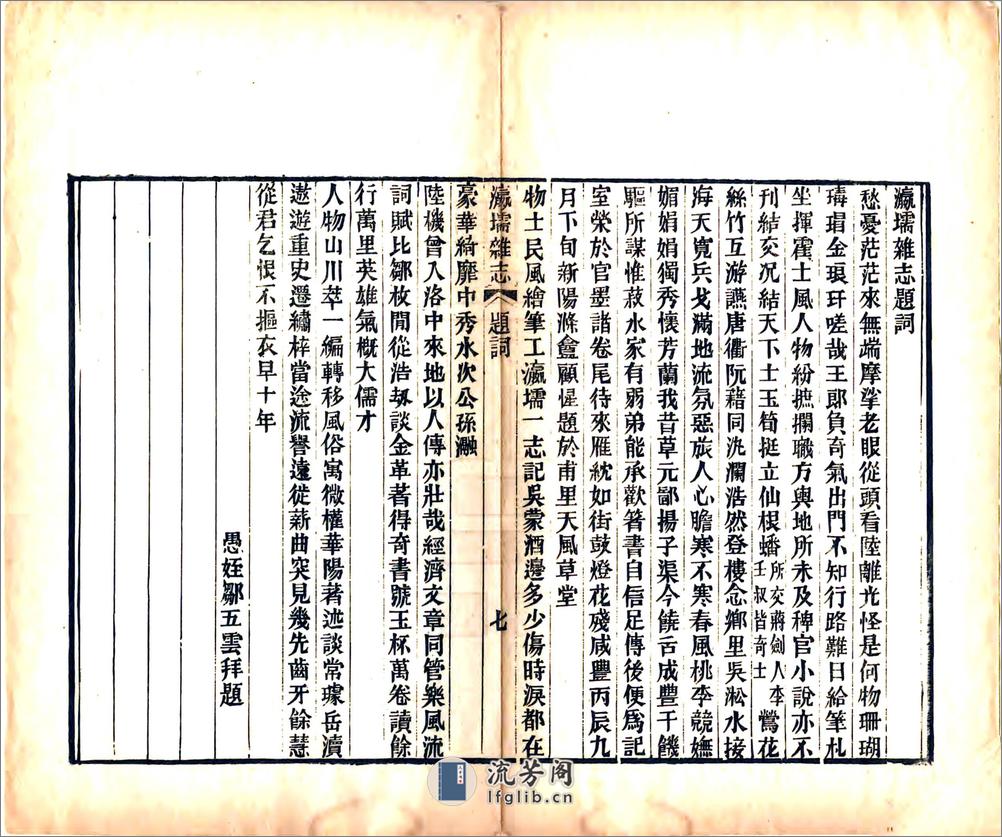 瀛壖雜志題詞
愁憂茫茫來無端摩挲老眼從頭看陸離光怪是何物珊瑚
瑇瑁金琅玕嗟哉王郎負奇氣出門不知行路難日給筆札
坐揮霍土風人物紛摭攔職方輿地所未及稗官小說亦不
刊結交況結天下士玉筍挺立仙根蟠所交蔣劍人李壬叔皆奇士鶯花
絲竹互游讌唐衢阮藉同汍瀾浩然登樓念鄉里吳淞水接
海天寬兵戈滿地流氛惡旅人心膽寒不寒春風桃李競嫵
媚娟娟獨秀懷芳蘭我昔草元鄙揚子渠今饒舌成豐干饑
驅所謀惟菽水家有弱弟能承歡箸書自信足傳後便爲記
室榮於官墨諸卷尾待來雁紞如街鼓燈花殘咸豐丙辰九
月下旬新陽滌盦顧惺題於甫里天風草堂
物土民風繪筆工瀛壖一志記吳蒙酒邊多少傷時淚都在
瀛壖雜志 題詞 七
豪華綺靡中秀水次公孫瀜
陸機曾入洛中來地以人傳亦壯哉經濟文章同管樂風流
詞賦比鄒枚閒從浩刼談金革著得奇書號玉杯萬卷讀餘
行萬里英雄氣概大儒才
人物山川萃一編轉移風俗寓微權華陽著述談常璩岳瀆
遨遊重史遷繡梓當途流譽遠徙薪曲突見幾先齒牙餘慧
從君乞恨不摳衣早十年
愚姪鄒五雲拜題
流芳阁
lfglib.cn